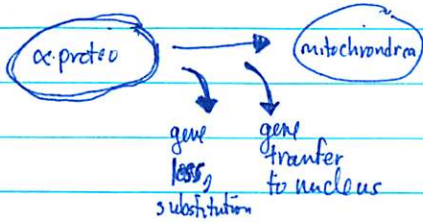 α-proteo
mitochrondrea
gene
loss,
substitution
gene
tranfer
to nucleus